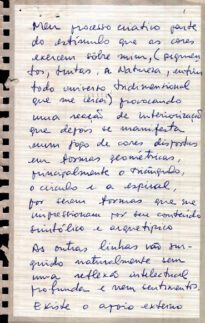 Meu processo criativo parte
do estímulo que as cores
exercem sôbre mim, (pigmen
tos, tintas, a Natureza, enfim
todo universo tridimensional
que me cerca) provocando
uma reação de interiorização
que depois se manifesta
num jogo de cores dispostas
em formas geométricas,
principalmente o triângulo,
o círculo e a espiral,
por serem formas que me
impressionam por seu conteúdo
simbólico e arquetípico
As outras linhas vão sur-
gindo naturalmente sem
uma reflexão intelectual
profunda e nem sentimentos.
Existe o apoio externo